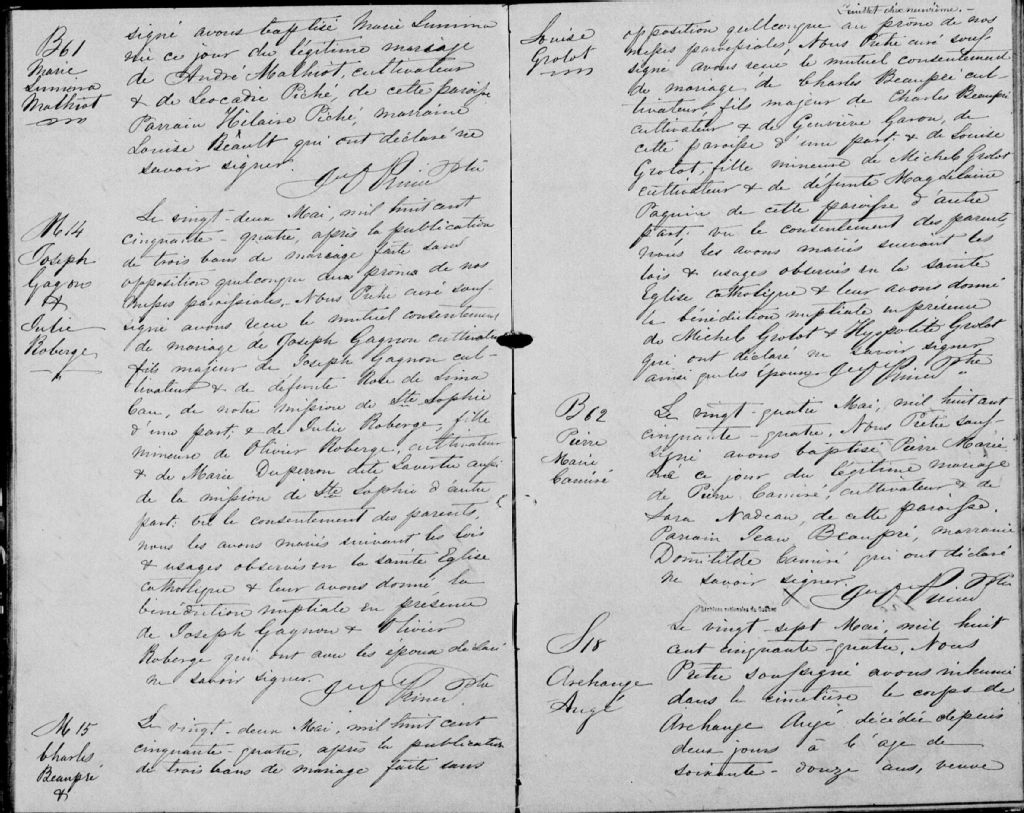 B61
Marie
Lumina
Mathiot
signé avons baptisé Marie Lumina
née ce jour du légitime mariage
de André Mathiot, cultivateur
& de Leocadie Piché, de cette paroisse
Parrain Hilaire Piché, marraine
Louise Beault qui ont déclaré ne
savoir signer.
Ptre
M14
Joseph
Gagnon
&
Julie
Roberge
Le vingt-deux Mai, mil huit cent
cinquante-quatre, après la publication
de trois bans de mariage faite sans
opposition quelconque aux prones de nos
messes paroissiales, Nous Prêtre curé sous-
signé avons recu le mutuel consentement
de mariage de Joseph Gagnon cultivateur
fils majeur de Joseph Gagnon cul-
tivateur & de défunte Rose de Lima
Cau, de notre mission de Ste Sophie
d'une part; & de Julie Roberge, fille
mineure de Olivier Roberge, cultivateur
& de Marie Duperron dite Lavertu aussi
de la mission de Ste Sophie d'autre
part: vu le consentement des parents,
nous les avons mariés suivant les lois
& usages observés en la sainte Eglise
catholique & leur avons donné la
bénédiction nuptiale en présence
de Joseph Gagnon & Olivier
Roberge qui ont avec les epoux déclaré
ne savoir signer.
Ptre
M15
Charles
Beaupré
&
Le vingt-deux Mai, mil huit cent
cinquante-quatre, après la publication
de trois bans de mariage faite sans
Feuillet dix neuvième.
Louise
Grolot
opposition quelconque au prône de nos
messes paroissiales, Nous Prêtre curé sous-
signé avons recu le mutuel consentement
de mariage de Charles Beaupré cul-
tivateur, fils majeur de Charles Beaupré
cultivateur & de Genviève Garon, de
cette paroisse d'une part; & de Louise
Grolot, fille mineure de Michel Grolot
cultivateur & de défunte Magdelaine
Paquin de cette paroisse d'autre
part; vu le consentement des parents,
nous les avons mariés suivant les
lois & usages observés en la sainte
Eglise catholique & leur avons donné
la bénédiction nuptiale en présence
de Michel Grolot & Hyppolite Grolot
qui ont déclaré ne savoir signer
ainsi que les époux.
Ptre
B62
Pierre
Marie
Camiré
Le vingt-quatre Mai, mil huit cent
cinquante-quatre, Nous Prêtre sous-
signé avons baptisé Pierre Marie
né ce jour du légitime mariage
de Pierre Camiré cultivateur & de
Lara Nadeau, de cette paroisse.
Parrain Jean Beaupré, marraine
Domitilde Camiré qui ont déclaré
ne savoir signer.
Ptre
Archives nationales du Québec
S18
Archange
Augé
Le vingt-sept Mai, mil huit
cent cinquante-quatre, Nous
Prêtre soussigné avons inhumé
dans le cimetière le corps de
Archange Augé décédée depuis
deux jours à l'age de
soixante-douze ans, veuve